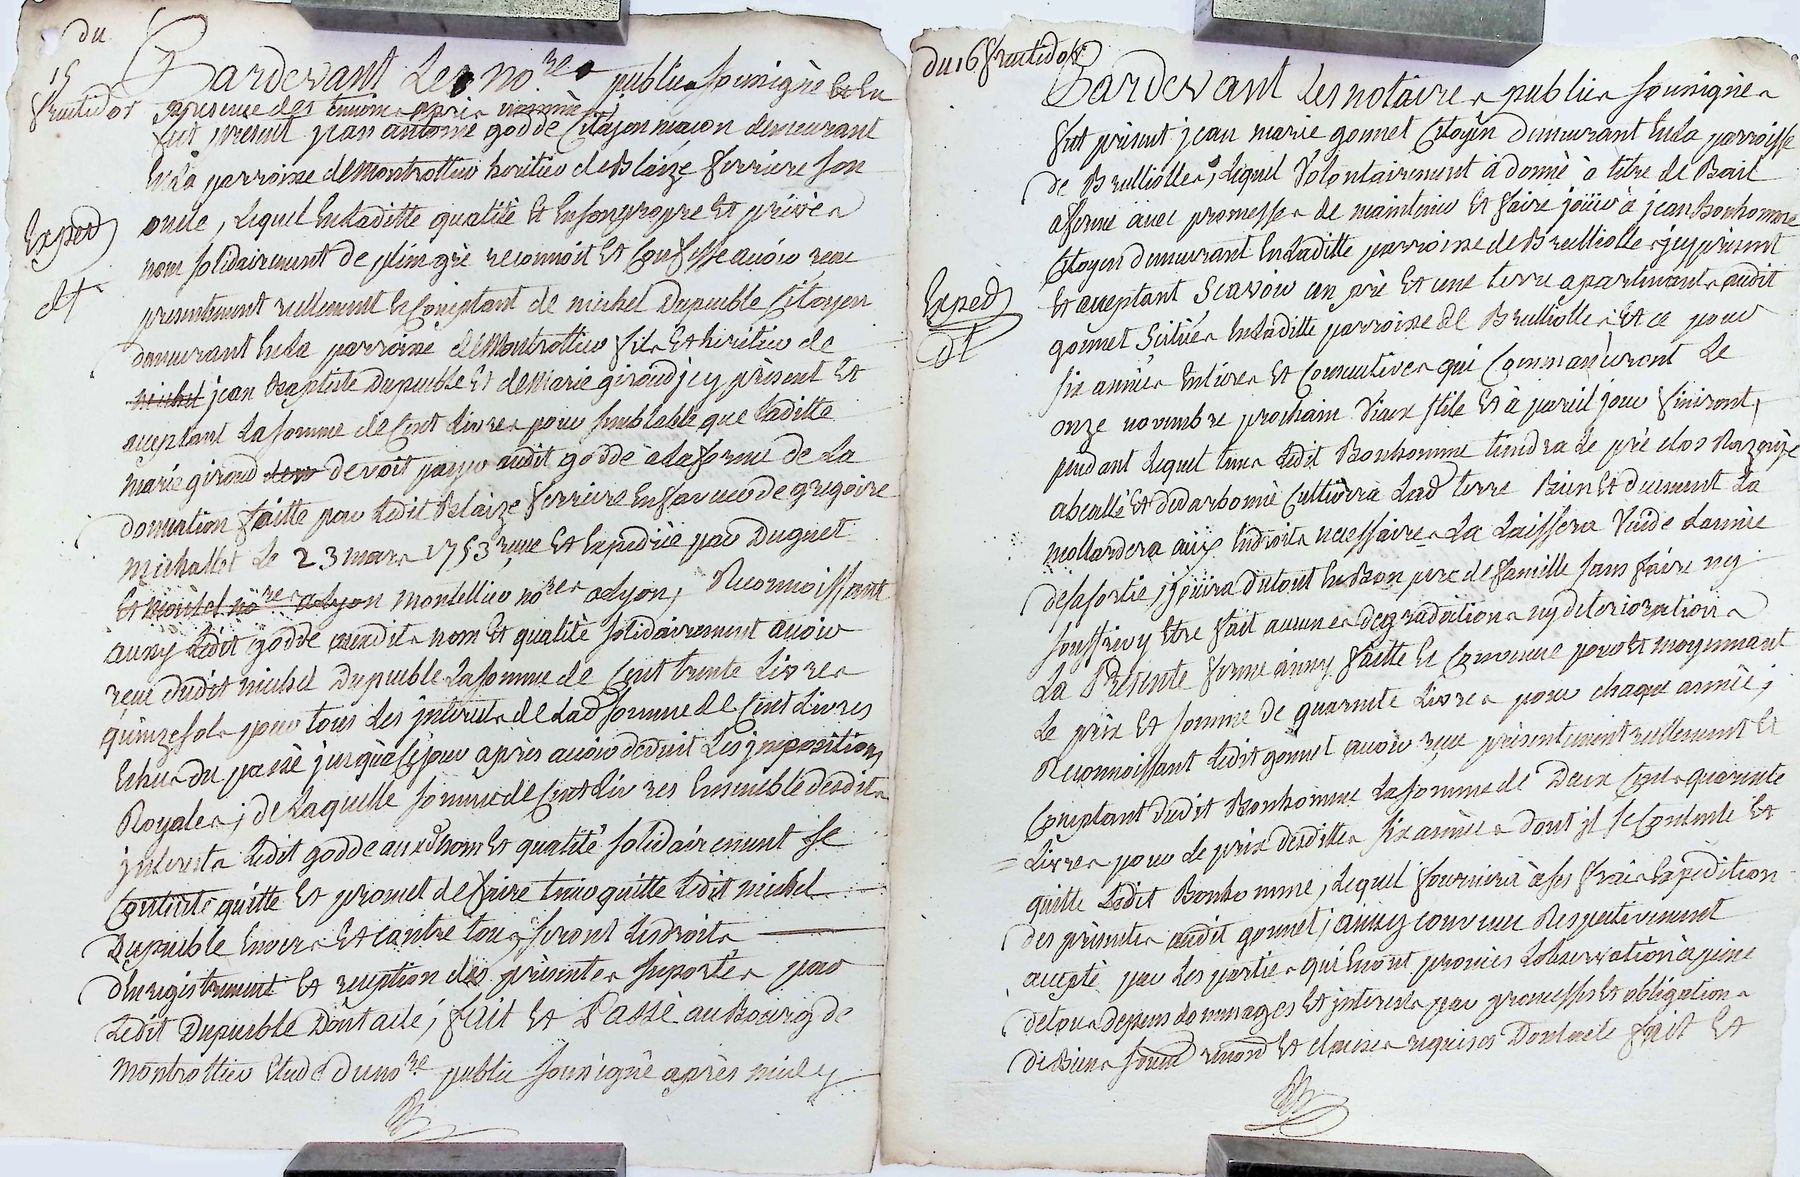 du
15
fructidor
Exped
dt
Pardevant Les no.re publics soussigné Et En
presence des temoins apres nommés
fut present jean antoine godde Citoyen maçon demeurant
En La parroisse de Montrottier heritier de Blaize ferriere son
oncle, Lequel En Laditte qualité Et En son propre Et privé
nom solidairement de plein gré reconnoit Et Confesse avoir reçu
presentement réellement Et Comptant de michel Dupeuble Citoyen
demeurant En La parroisse de Montrottier fils Et héritier de
michel jean Baptiste Dupeuble Et de Marie giroud jcy présent Et
aceptant La somme de Cent Livres pour semblable que Laditte
marie giroud devoit payer audit godde à La forme de La
donnation faitte par Ledit Blaize ferriere En faveur de gregoire
michallet Le 23 mars 1753 reçue Et Expediée par Duguet
Et no.re a Lyon montellier no.res a Lyon, Reconnoissant
aussy Ledit godde auxdits nom Et qualité solidairement avoir
reçu dudit michel Dupeuble La somme de Cent trente Livres
quinze sols pour tous Les jnterests de Lad somme de Cent Livres
Echus du passé jusqu'à Ce jour après avoir déduit Les jmpositions
Royales; de Laquelle somme de Cent Livres Ensemble desdits
jnterests Ledit godde auxd nom Et qualité solidairement se
Contente quitte Et promet de faire tenir quitte Ledit michel
Dupeuble Envers Et contre tous, seront Les droits
d'Enregistrement Et reception des présentes suportés par
Ledit Dupeuble Dont acte; fait Et Passé au Bourg de
Montrottier Etude du no.re public soussigné après midy
du 16 fructidor
Exped
dt
Pardevant Les notaires publics soussignés
fut présent jean marie gonnet Citoyen demeurant En La parroisse
de Brulliolles, Lequel Volontairement à donné à titre de Bail
aferme avec promesses de maintenir Et faire jouir à jean Bonhomme
Citoyen demeurant En Laditte parroisse de Brulliolles jcy présent
Et aceptant Scavoir un pré Et une terre apartenants audit
gonnet Scitués En Laditte parroisse de Brulliolles Et ce pour
six années Entieres Et Consecutives qui Commanceront Le
onze novembre prochain Vieux stile Et à pareil jour finiront,
pendant Lequel tems Ledit Bonhomme tiendra Le pré clos Razgrize
Et Cultivera Lad terre Bien Et duement La
mollardera aux Endroits necessaires La Laissera Vuide L'année
de sa sortie, jouira du tout En Bon pere de famille sans faire ny
souffrir y Etre fait aucunes degradations ny deteriorations
La Présente ferme ainsy faitte Et Convenue pour Et moyennant
Le prix Et somme de quarante Livres pour chaque année;
Reconnoissant Ledit gonnet avoir reçu présentement réellement Et
Comptant dudit Bonhomme La somme de Deux Cents quarante
Livres pour Le prix desdittes six années Dont jl se Contente Et
quitte Ledit Bonhomme, Lequel fournira à ses frais Expedition
des présentes audit gonnet; ainsy convenu Respectivement
accepté par Les parties qui En ont promis L'observation à peine
de tous Depens dommages Et jnterests par promesses Et obligations
de Biens soum renond Et clauses requises Dont acte fait Et